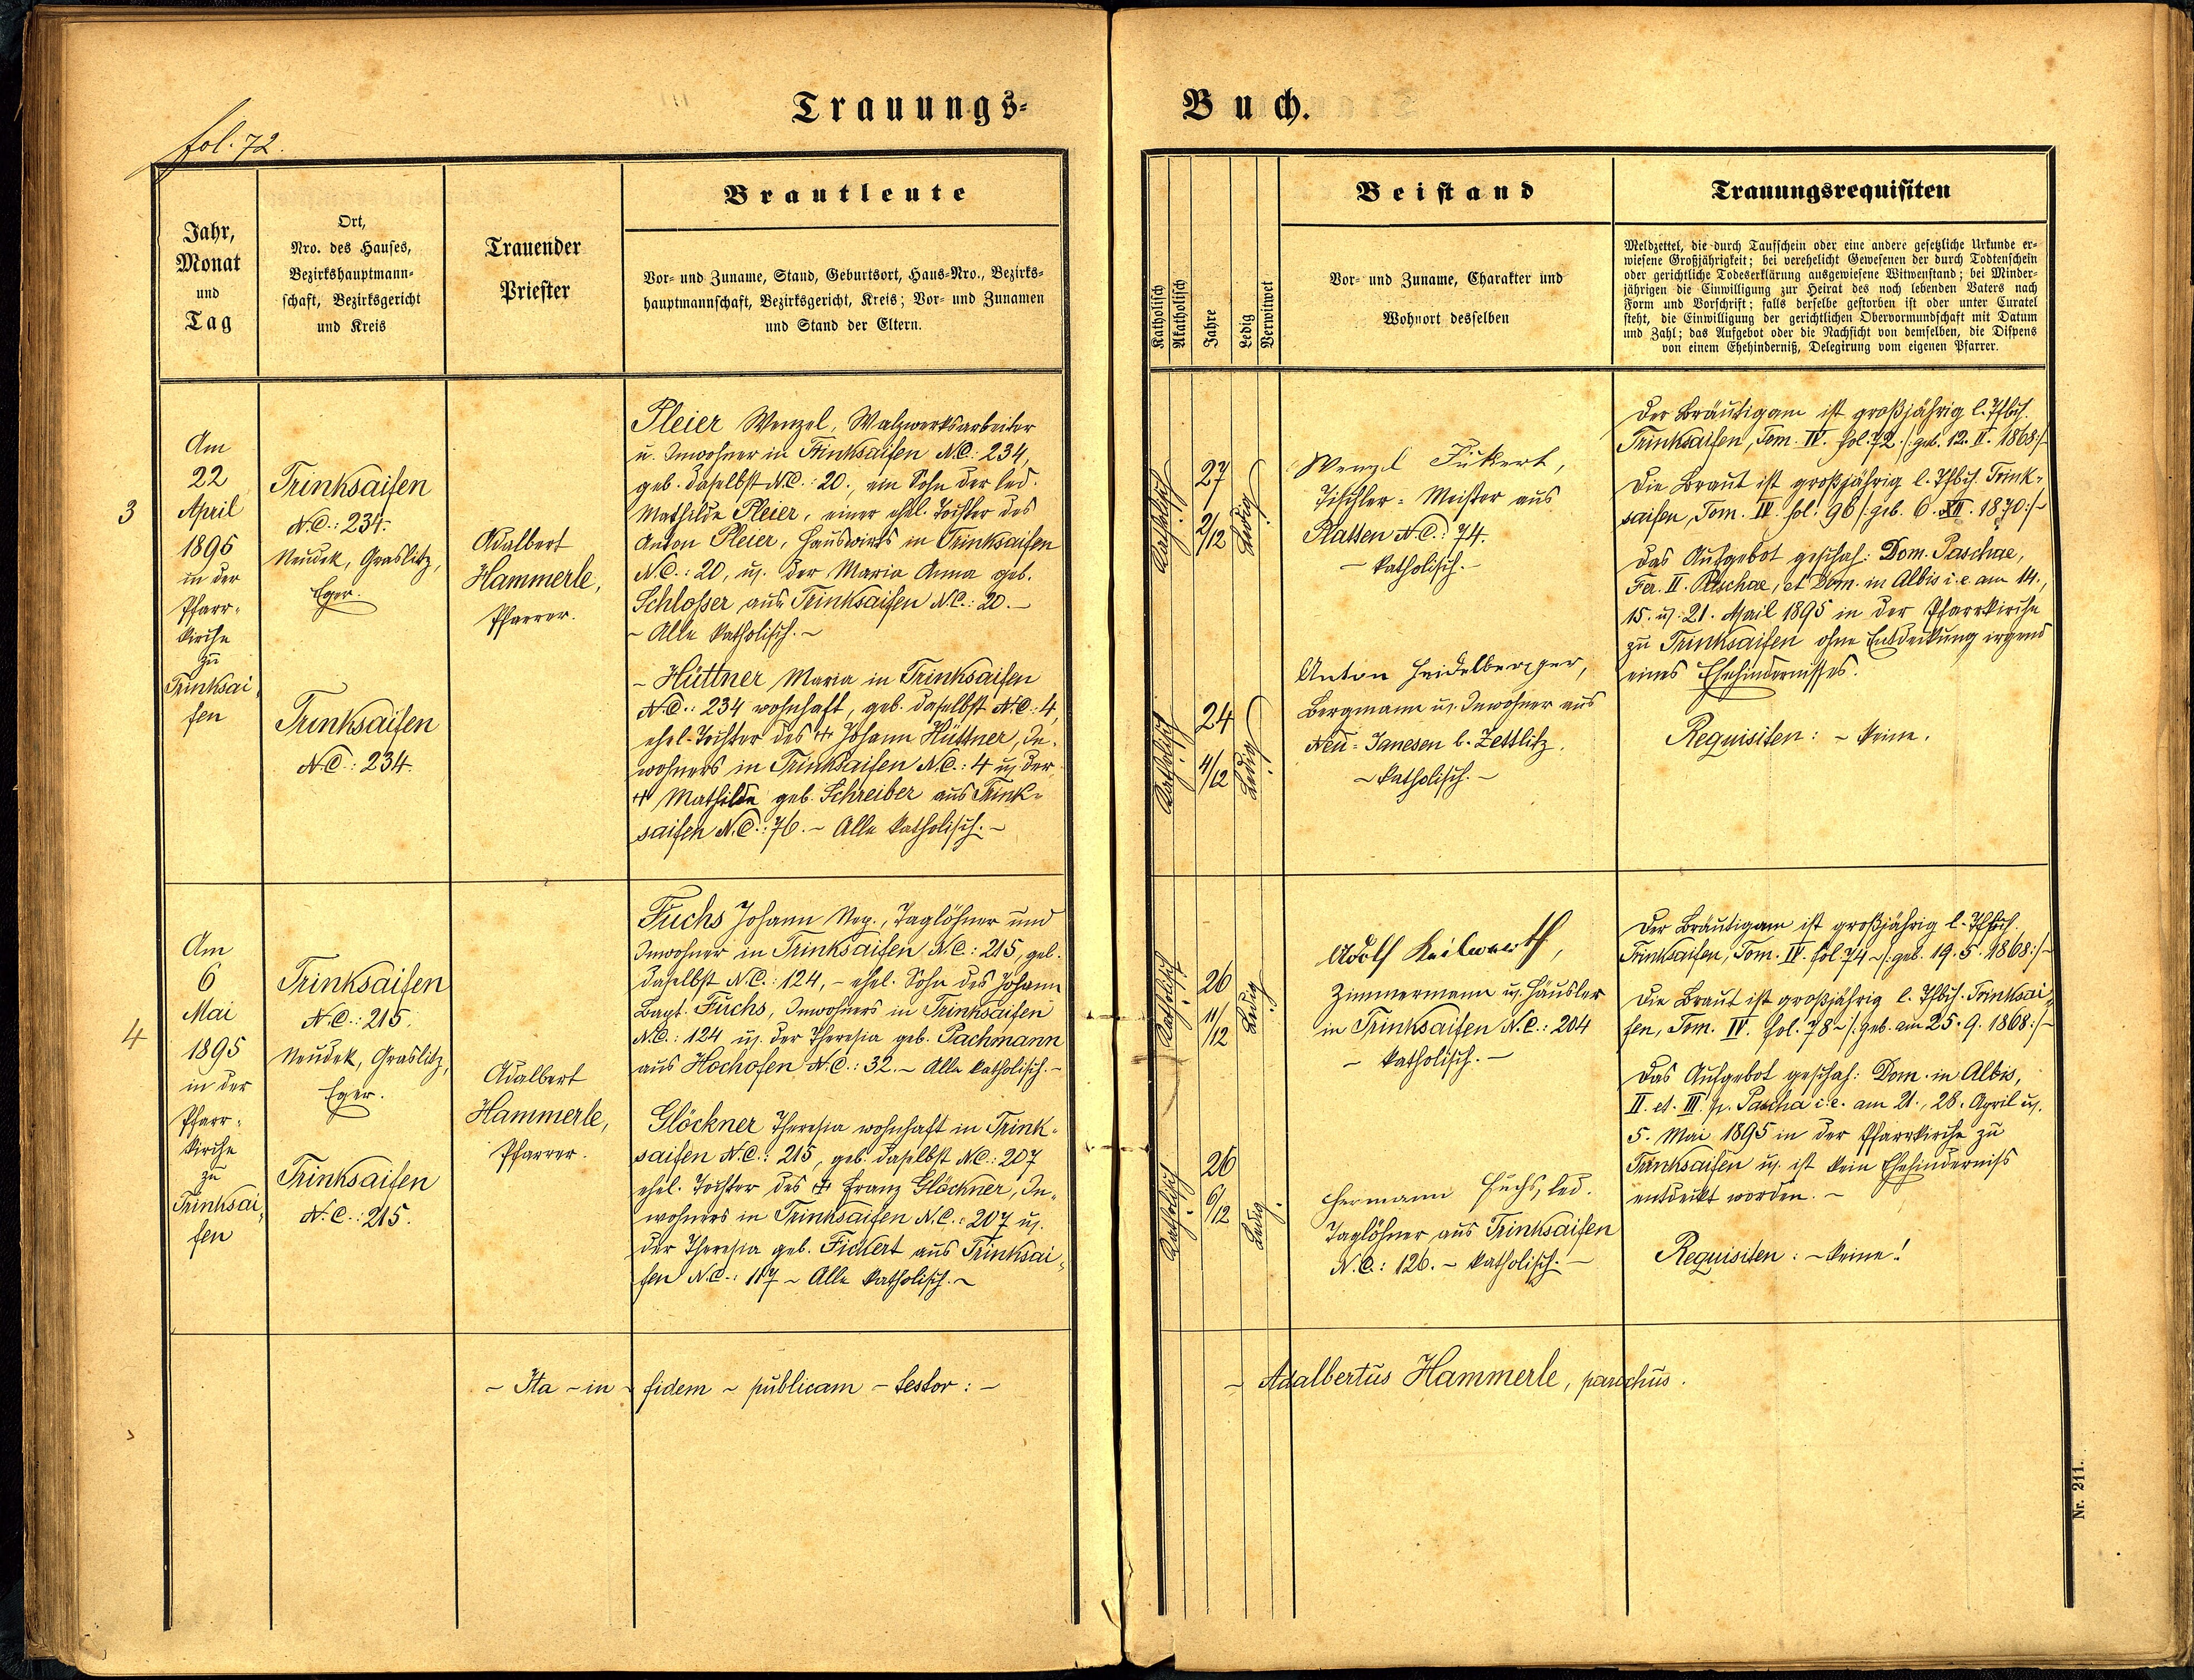 fol. 72.
Trauungs-
Buch.
Jahr,
Monat
und
Tag
Ort,
Nro. des Hauses,
Bezirkshauptmann-
schaft, Bezirksgericht
und Kreis
Trauender
Priester
Brautleute
Vor- und Zuname, Stand, Geburtsort, Haus-Nro., Bezirks-
hauptmannschaft, Bezirksgericht, Kreis; Vor- und Zunamen
und Stand der Eltern.
Katholisch
Akatholisch
Jahre
Ledig
Verwitwet
Beistand
Vor- und Zuname, Charakter und
Wohnort desselben
Trauungsrequisiten
Meldzettel, die durch Taufschein oder eine andere gesetzliche Urkunde er-
wiesene Großjährigkeit; bei verehelicht Gewesenen der durch Todtenschein
oder gerichtliche Todeserklärung ausgewiesene Witwenstand; bei Minder-
jährigen die Einwilligung zur Heirat des noch lebenden Vaters nach
Form und Vorschrift; falls derselbe gestorben ist oder unter Curatel
steht, die Einwilligung der gerichtlichen Obervormundschaft mit Datum
und Zahl; das Aufgebot oder die Nachsicht von demselben, die Dispens
von einem Ehehinderniß, Delegirung vom eigenen Pfarrer.
3
Am
22
April
1895
in der
Pfarr-
kirche
zu
Trinksai-
fen
Trinksaifen
N.C.: 234.
Neudek, Graslitz,
Eger.
Trinksaifen
N.C.: 234.
Adalbert
Hammerle,
Pfarrer.
Pleier Wenzel, Walzwerksarbeiter
u. Inwohner in Trinksaifen N.C.: 234,
geb. daselbst N.C.: 20., ein Sohn der led.
Mathilde Pleier, einer ehel. Tochter des
Anton Pleier, Hauswirts in Trinksaifen
N.C.: 20, u. der Maria Anna geb.
Schlosser aus Trinksaifen N.C.: 20. –
~ Alle katholisch. ~
~ Hüttner Maria in Trinksaifen
N.C.: 234 wohnhaft, geb. daselbst N.C.: 4,
ehel. Tochter des † Johann Hüttner, In-
wohners in Trinksaifen N.C.: 4 u. der
† Mathilde geb. Schreiber aus Trink-
saifen N.C.: 76. ~ Alle katholisch. ~
Katholisch
27
2/12
Ledig
Katholisch
24
4/12
Ledig
Wenzel Fükert,
Tischler-Meister aus
Platten N.C.: 74.
– katholisch. –
Anton Heidelberger,
Bergmann u. Inwohner aus
Neu-Janesen b. Zettlitz.
~ katholisch. ~
Der Bräutigam ist großjährig l. Tfbch.
Trinksaifen, Tom. IV. fol. 72 /: geb. 12. II. 1868 :/
Die Braut ist großjährig l. Tfbch. Trink-
saifen, Tom. IV. fol. 96 /: geb. 6. XII. 1870 :/
Das Aufgebot geschah: Dom. Paschae,
Fer. II. Paschae, et Dom. in Albis i. e. am 14.,
15. u. 21. April 1895 in der Pfarrkirche
zu Trinksaifen ohne Entdeckung irgend
eines Ehehindernisses.
Requisiten: ~ keine.
4
Am
6
Mai
1895
in der
Pfarr-
kirche
zu
Trinksai-
fen
Trinksaifen
N.C.: 215.
Neudek, Graslitz,
Eger.
Trinksaifen
N.C.: 215.
Adalbert
Hammerle,
Pfarrer.
Fuchs Johann Nep., Taglöhner und
Inwohner in Trinksaifen N.C.: 215, geb.
daselbst N.C.: 124, ~ ehel. Sohn des Johann
Bapt. Fuchs, Inwohners in Trinksaifen
N.C.: 124 u. der Theresia geb. Pachmann
aus Hochofen N.C.: 32. ~ Alle katholisch. ~
Glöckner Theresia wohnhaft in Trink-
saifen N.C.: 215, geb. daselbst N.C.: 207
ehel. Tochter des † Franz Glöckner, In-
wohners in Trinksaifen N.C.: 207 u.
der Theresia geb. Fickert aus Trinksai-
fen N.C.: 117 ~ Alle katholisch. ~
Katholisch
26
11/12
Ledig
Katholisch
26
6/12
Ledig
Adolf Keilwerth,
Zimmermann u. Häusler
in Trinksaifen N.C.: 204
– katholisch. –
Hermann Fuchs, led.
Taglöhner aus Trinksaifen
N.C.: 126. ~ katholisch. –
Der Bräutigam ist großjährig l. Tfbch.
Trinksaifen, Tom. IV. fol 74 ~ /: geb. 19. 5. 1868 :/ ~
Die Braut ist großjährig l. Tfbch. Trinksai-
fen, Tom. IV. fol. 78 ~ /: geb. am 25. 9. 1868 :/ ~
Das Aufgebot geschah: Dom. in Albis,
II. et. III. p. Pascha i. e. am 21., 28. April u.
5. Mai 1895 in der Pfarrkirche zu
Trinksaifen u. ist kein Ehehinderniss
entdeckt worden. ~
Requisiten: ~ keine!
~ Ita ~ in ~ fidem ~ publicam ~ testor: ~
~ Adalbertus Hammerle, parochus.
Nr. 211.